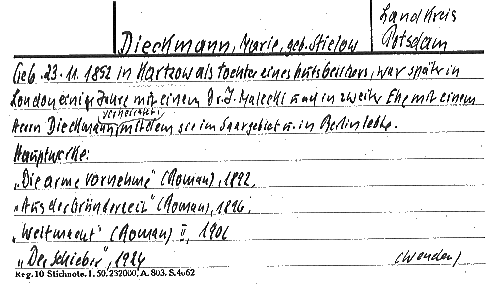 Landkreis
Dieckmann, Marie, geb. Stielow
Potsdam
Geb. 23.11.1852 in Hartzow als Tochter eines Gutsbesitzers, war später in
London einige Jahre mit einem Dr. J. Malecki und in zweiter Ehe mit einem
verheiratet
Herrn Dieckmann, mit dem sie im Saargebiet u. in Berlin lebte.
Hauptwerke:
„Die arme Vornehme" (Roman), 1892,
„Aus der Gründerzeit" (Roman), 1896,
„Weltmacht" (Roman) II, 1906
„Der Schieber", 1924
(Wenden)
Reg. 10 Stichnote. I. 50, 232000, A. 803. S. 4062